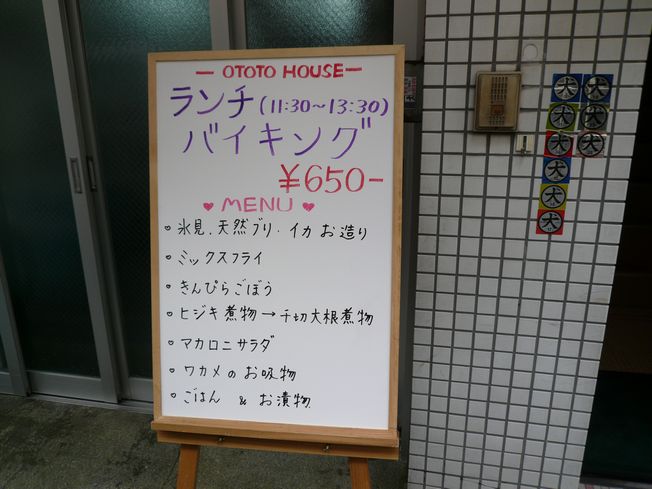 — OTOTO HOUSE —
ランチ(11:30~13:30)
バイキング
¥650-
♥ MENU ♥
♥ 氷見、天然ブリ・イカ お造り
♥ ミックスフライ
♥ きんぴらごぼう
♥ ヒジキ煮物→千切大根煮物
♥ マカロニサラダ
♥ ワカメのお吸物
♥ ごはん & お漬物
犬 犬
犬 犬
犬 犬
犬
犬
犬